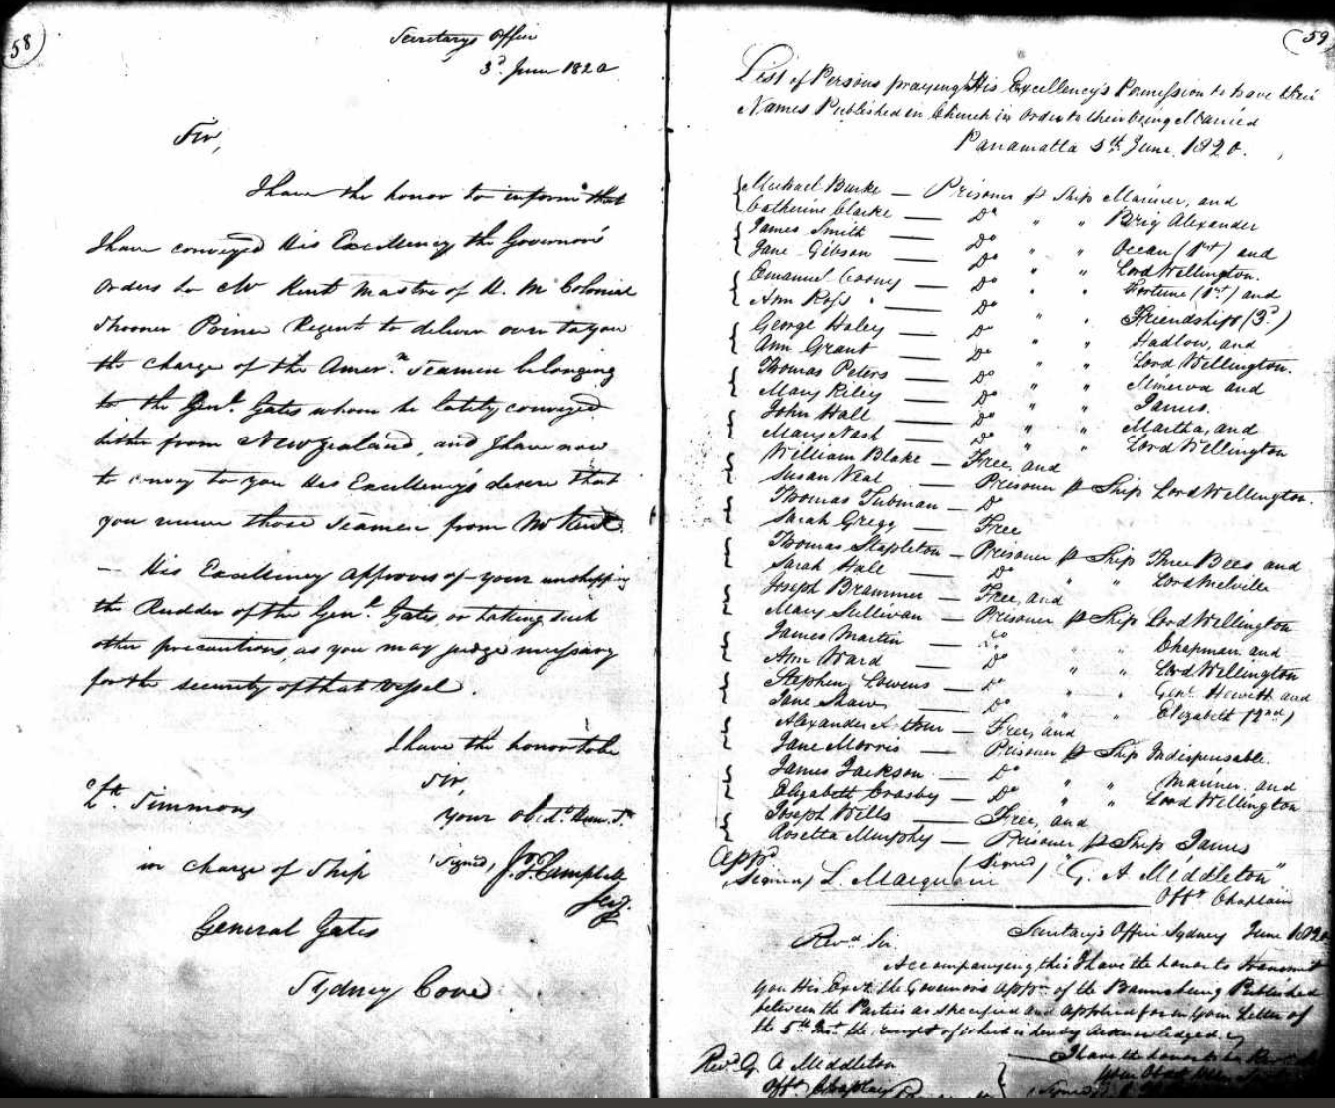 58)
Secretarys Office
3d. June 1820
Sir,
I have the honor to inform that
I have conveyed His Excellency the Governor's
orders to Mr Kent Master of H. M Colonial
Shooner Prince Regent to deliver over to you
the charge of the Amern. Seamen belonging
to the Genl. Gates whom he lately conveyed
hither from New Zealand, and I have now
to convey to you His Excellency's desire that
you receive those Seamen from Mr Kent.
— His Excellency approves of your unshipping
the Rudder of the Genl. Gates or taking such
other precautions, as you may judge necessary
for the security of that Vessel.
I have the honor to be
Sir,
your Obedt. Hum. St.
Signed, J. T. Campbell
Secy.
Lth. Simmons
in charge of Ship
General Gates
Sydney Cove
(59
List of Persons praying His Excellency's Permission to have their
Names Published in Church in order to their being Married
Parramatta 5th June, 1820.
Michael Burke — Prisoner p Ship Mariner, and
Catherine Clarke — Do " " Brig Alexander
James Smith — Do " " Ocean (1st) and
Jane Gibson — Do " " Lord Wellington.
Emanuel Cooney — Do " " Fortune (1st) and
Ann Ross — Do " " Friendship (3d.)
George Haley — Do " " Hadlow, and
Ann Grant — Do " " Lord Wellington.
Thomas Peters — Do " " Minerva and
Mary Riley — Do " " James.
John Hall — Do " " Martha, and
Mary Nash — Do " " Lord Wellington
William Blake — Free, and
Susan Neal — Prisoner p Ship Lord Wellington.
Thomas Tubman — Do
Sarah Gregg — Free
Thomas Stapleton — Prisoner p Ship Three Bees and
Sarah Hall — Do " " Lord Melville
Joseph Brammer — Free, and
Mary Sullivan — Prisoner p Ship Lord Wellington
James Martin — Do " " Chapman and
Ann Ward — Do " " Lord Wellington
Stephen Cowens — Do " " Genl. Hewitt and
Jane Shaw — Do " " Elizabeth (2nd)
Alexander — Free, and
Jane Morris — Prisoner p Ship Indispensable.
James Jackson — Do " " Mariner and
Elizabeth Crasby — Do " " Lord Wellington
Joseph Wells — Free, and
Rosetta Murphy — Prisoner p Ship James
Appd
(Signed) L. Macquarie (Signed) "G. A. Middleton"
Offg Chaplain
Secretary's Office Sydney June 1820
Revd Sir.
Accompanying this I have the honor to transmit
you His Excy. the Governor's appn of the Banns being Published
between the Parties as specified and applied for in your Letter of
the 5th Inst. the receipt of which is hereby acknowledged.
I have the honor to be
Revd. G. A Middleton
Offg Chaplain
(Signed)